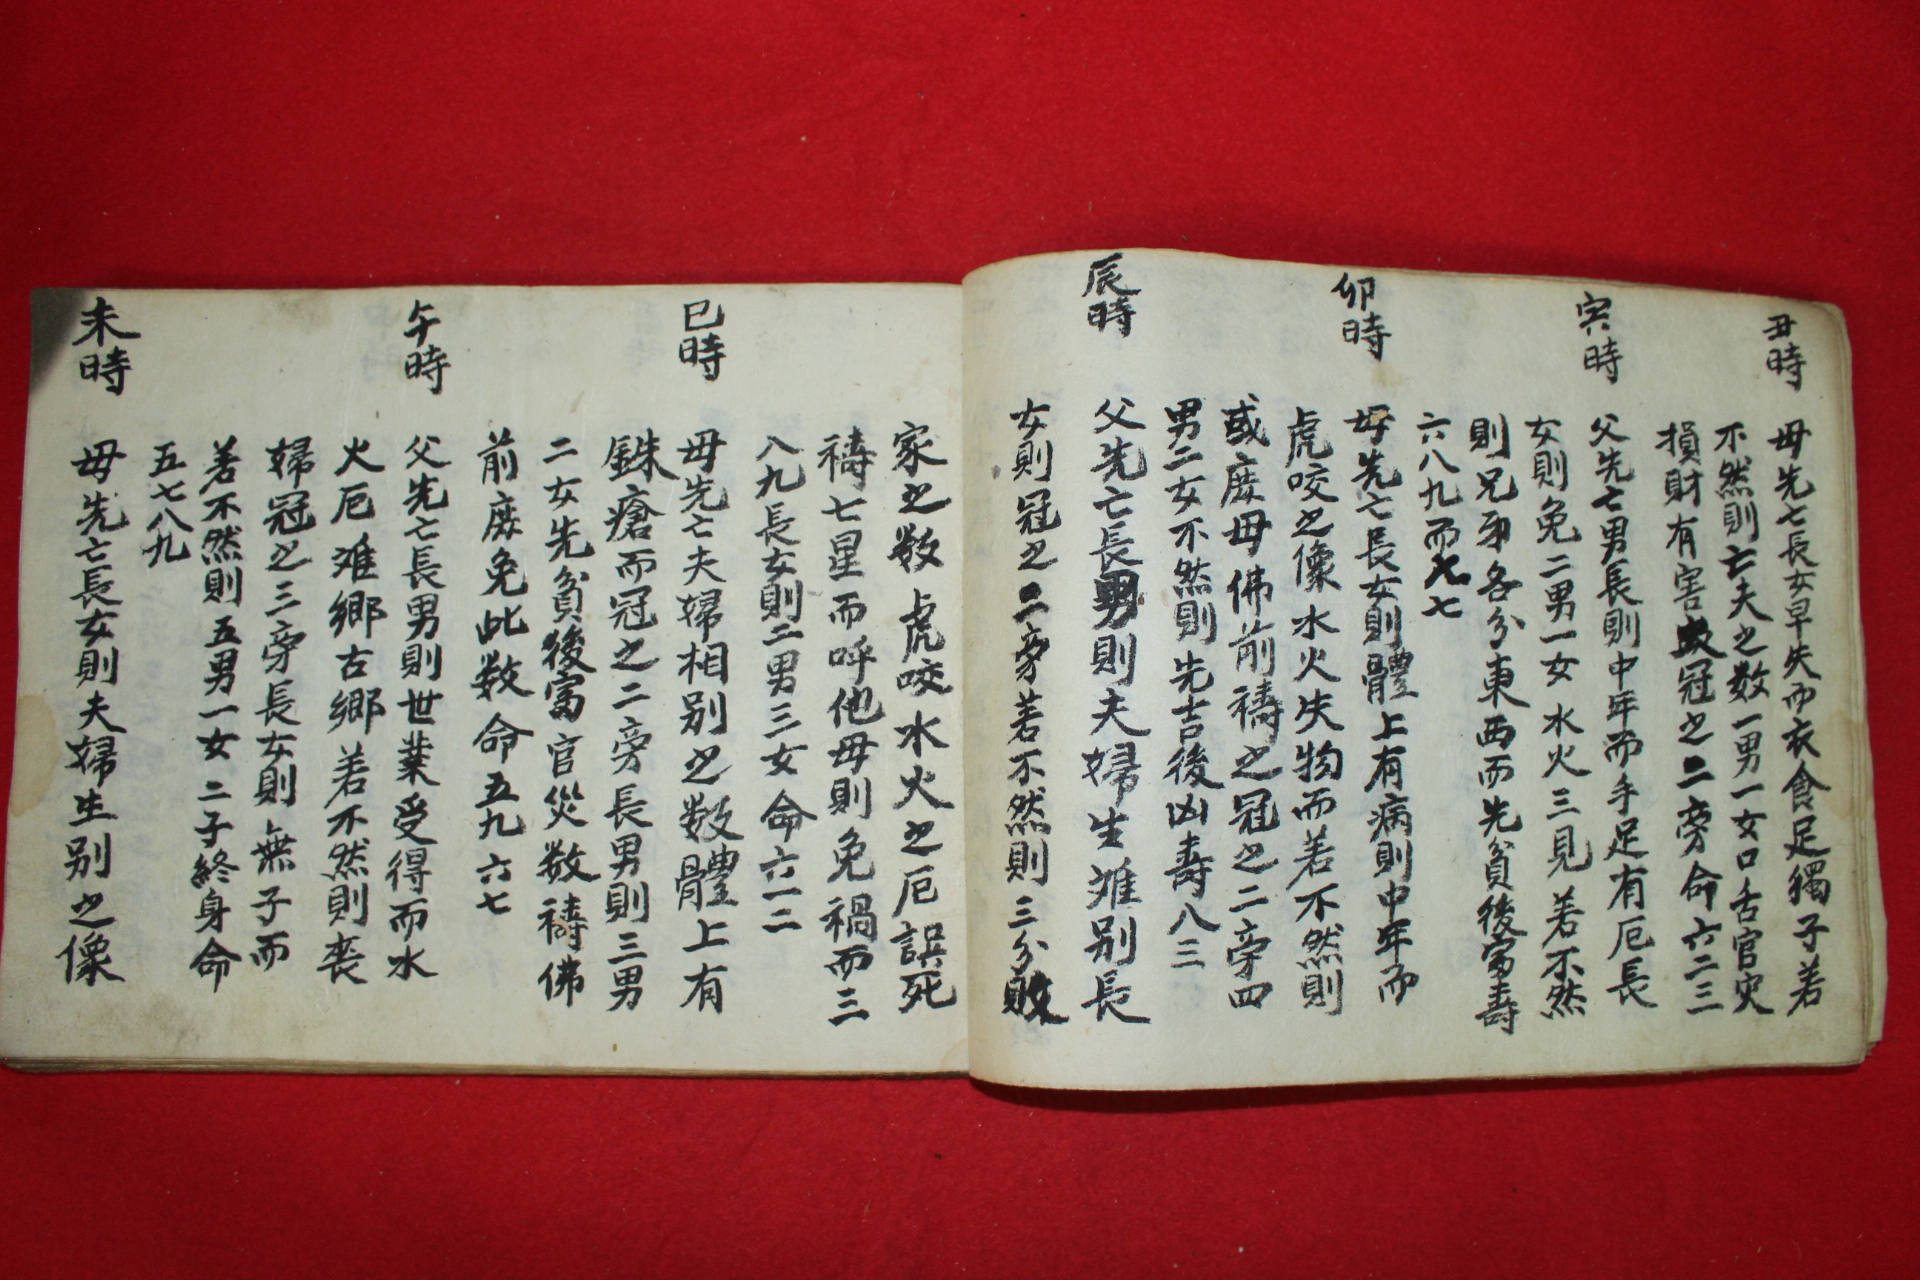 丑時
母先亡長女早失而衣食足獨子若
不然則亡夫之数一男一女口舌官灾
損財有害冠之二旁命六二三
寅時
父先亡男長則中年而手足有厄長
女則免二男一女水火三見若不然
則兄弟各分東西而先貧後富壽
六八九而七七
卯時
母先亡長女則體上有病則中年而
虎咬之像水火失物而若不然則
或庶母佛前禱之冠之二旁四
男二女不然則先吉後凶壽八三
辰時
父先亡長男則夫婦生难别長
女則冠之二旁若不然則三分敗
家之数虎咬水火之厄誤死
禱七星而呼他母則免禍而三
八九長女則二男三女命六一二
巳時
母先亡夫婦相别之数體上有
銖瘡而冠之二旁長男則三男
二女先貧後富官災数禱佛
前庶免此数命五九六七
午時
父先亡長男則世業受得而水
火厄难鄉古鄉若不然則丧
婦冠之三旁長女則無子而
若不然則五男一女二子終身命
五七八九
未時
母先亡長女則夫婦生别之像